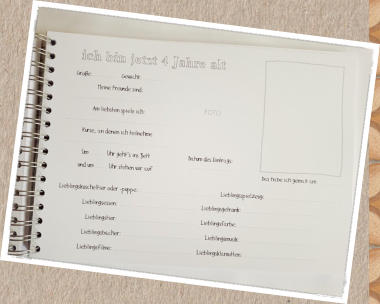 ich bin jetzt 4 Jahre alt
Größe: Gewicht:
Meine Freunde sind:
Am liebsten spiele ich:
FOTO
Kurse, an denen ich teilnehme:
Um Uhr geht's ins Bett
und um Uhr stehen wir auf
Datum des Eintrags:
Das habe ich gemalt am:
Lieblingskuscheltier oder -puppe:
Lieblingsspielzeug:
Lieblingsessen:
Lieblingsgetränk:
Lieblingstier:
Lieblingsfarbe:
Lieblingsbücher:
Lieblingsmusik:
Lieblingsfilme:
Lieblingsklamotten: